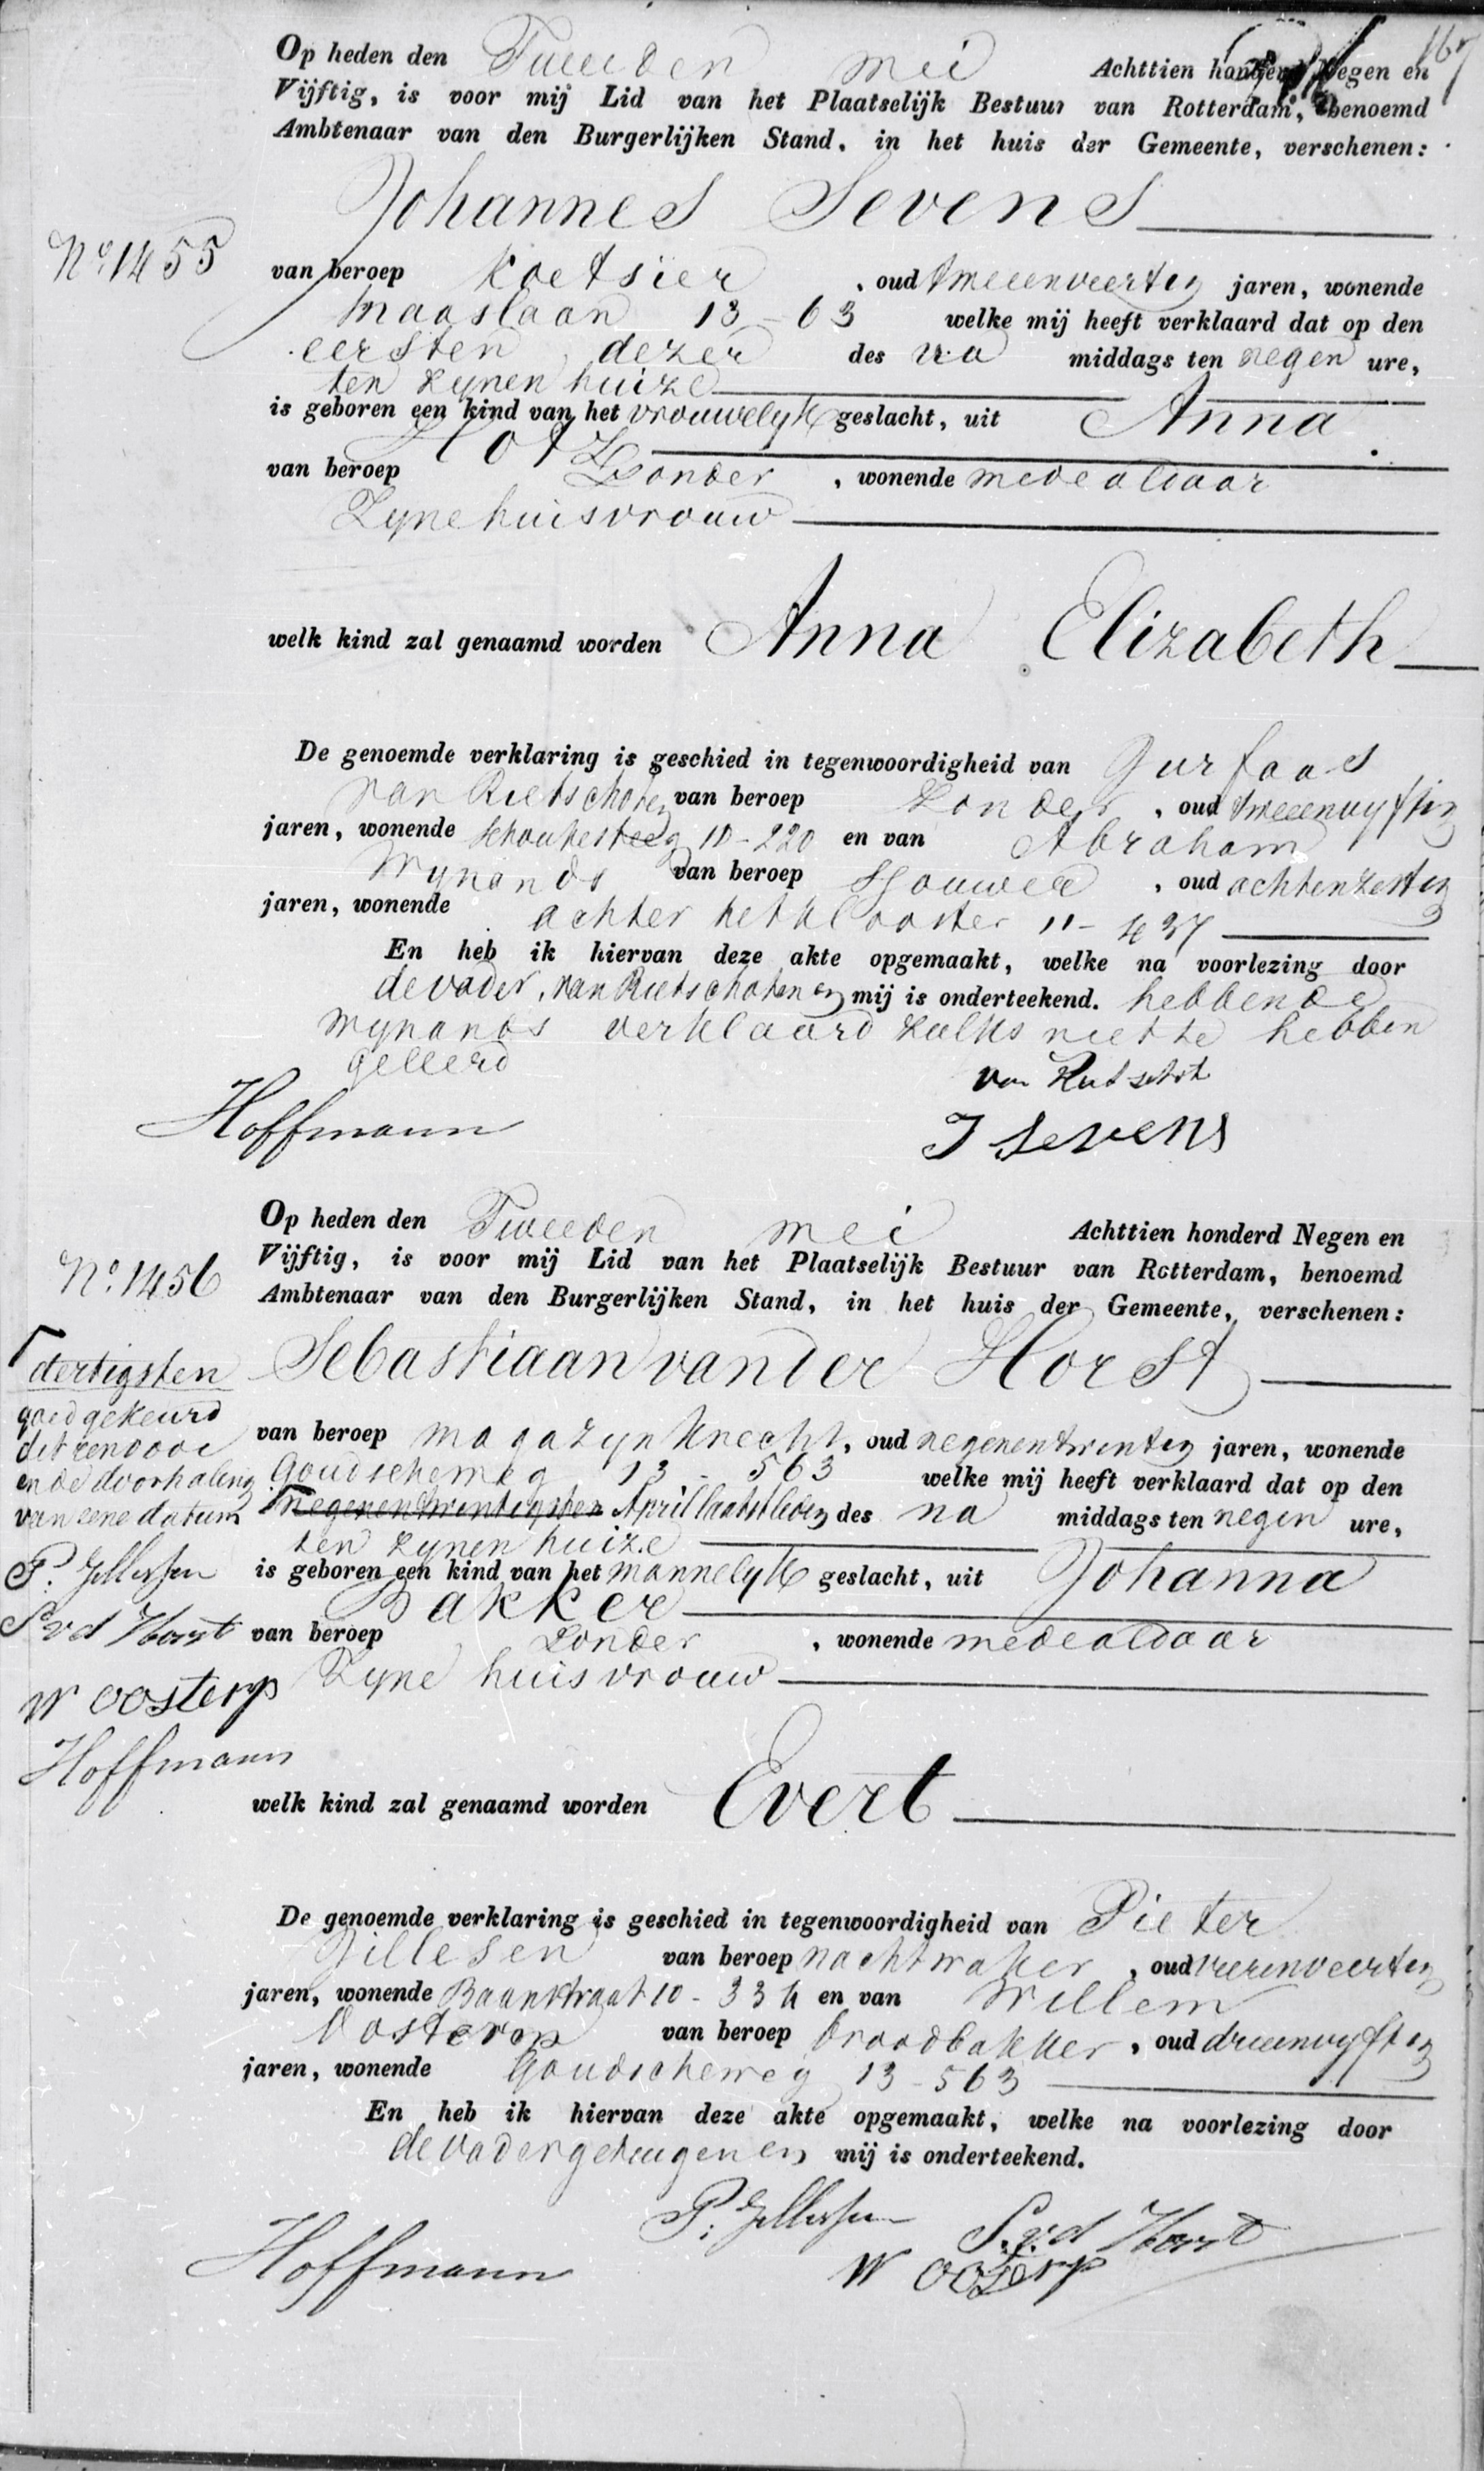 167
Op heden den Tweeden mei Achttien honderd Negen en
Vijftig, is voor mij Lid van het Plaatselijk Bestuur van Rotterdam, benoemd
Ambtenaar van den Burgerlijken Stand, in het huis der Gemeente, verschenen:
Johannes Sevens
No. 1455
van beroep Koetsier, oud tweeenveertig jaren, wonende
maaslaan 13-63 welke mij heeft verklaard dat op den
eersten dezer des na middags ten negen ure,
ten zynen huize
is geboren een kind van het vrouwelyk geslacht, uit Anna
Hof
van beroep Zonder, wonende mede aldaar
Zyne huisvrouw
welk kind zal genaamd worden Anna Elizabeth
De genoemde verklaring is geschied in tegenwoordigheid van Gurfaas
van Rietschoten van beroep Zonder, oud tweeenvyftig
jaren, wonende 10-220 en van Abraham
Wynands van beroep Sjouwer, oud achtenzestig
jaren, wonende achter het klooster 11-437
En heb ik hiervan deze akte opgemaakt, welke na voorlezing door
de vader, van Rietschoten en mij is onderteekend. hebbende
Wynands verklaard zulks niet te hebben
geleerd
Hoffmann
J Sevens
Op heden den Tweeden mei Achttien honderd Negen en
Vijftig, is voor mij Lid van het Plaatselijk Bestuur van Rotterdam, benoemd
Ambtenaar van den Burgerlijken Stand, in het huis der Gemeente, verschenen:
No. 1456
Sebastiaan van der Horst
van beroep magazynknecht, oud negenentwintig jaren, wonende
Goudscheweg 13-563 welke mij heeft verklaard dat op den
negenentwintigsten April laatstleden des na middags ten negen ure,
ten zynen huize
is geboren een kind van het mannelyk geslacht, uit Johanna
Bakker
van beroep Zonder, wonende mede aldaar
Zyne huisvrouw
dertigsten
goedgekeurd
dit renvooi
en de doorhaling
van eene datum
P. Gillesen
S vd Horst
W Oosterop
Hoffmann
welk kind zal genaamd worden Evert
De genoemde verklaring is geschied in tegenwoordigheid van Pieter
Gillesen van beroep nachtwaker, oud vierenveertig
jaren, wonende Baanstraat 10-334 en van Willem
Oosterop van beroep broodbakker, oud drieenvyftig
jaren, wonende Goudscheweg 13-563
En heb ik hiervan deze akte opgemaakt, welke na voorlezing door
de vader getuigen en mij is onderteekend.
P. Gillesen
S. v.d Horst
Hoffmann
W Oosterop